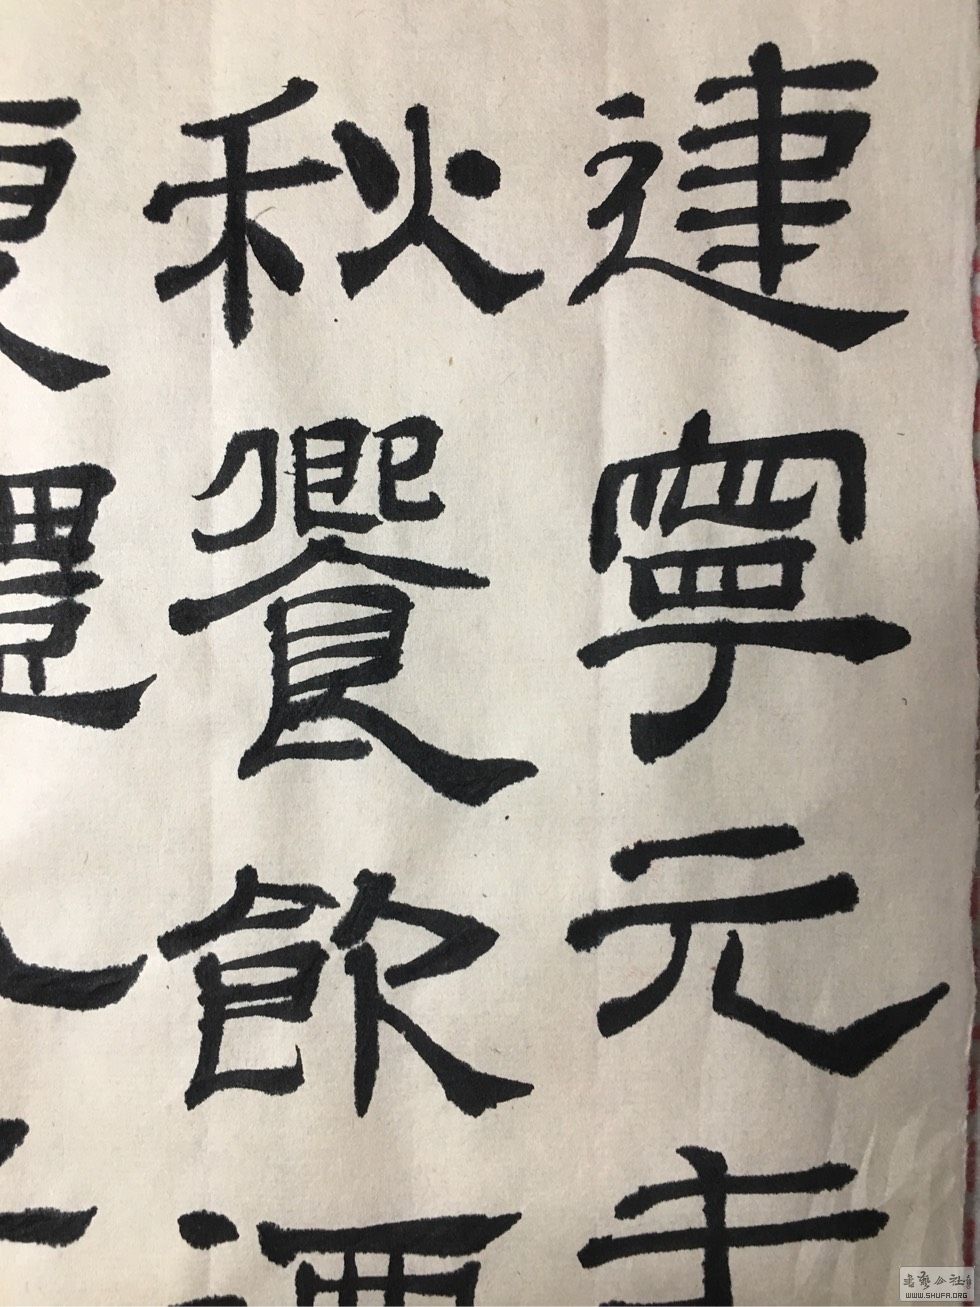 建寧元年
秋饗飲酒
书艺公社
WWW.SHUFA.ORG